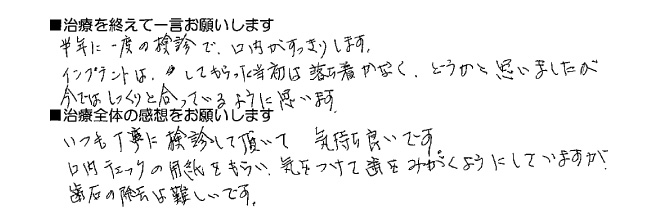 ■治療を終えて一言お願いします
半年に一度の検診で、口内がすっきりします。
インプラントは、してもらった当初は落ち着かなく、どうかと思いましたが
今ではしっくりと合っているように思います。
■治療全体の感想をお願いします
いつも丁寧に検診して頂いて 気持ち良いです
口内チェックの用紙をもらい、気をつけて歯をみがくようにしていますが、
歯石の除去は難しいです。